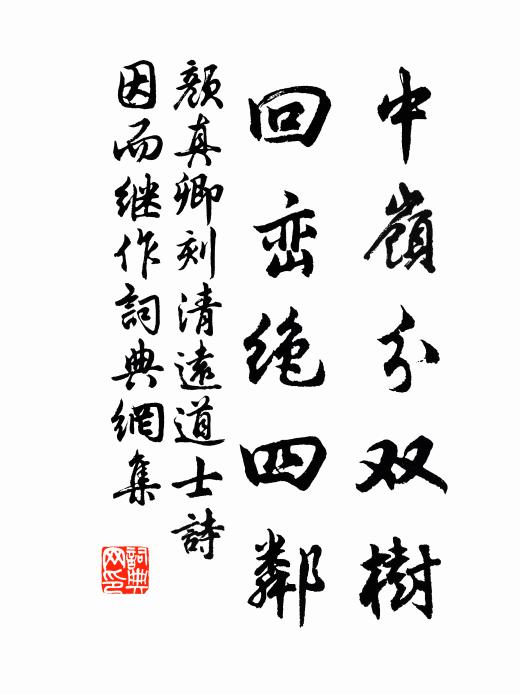 中嶺分双樹
回峦绝四鄰
顏真卿刻清遠道士詩
因而继作詞典網集
詞典网印